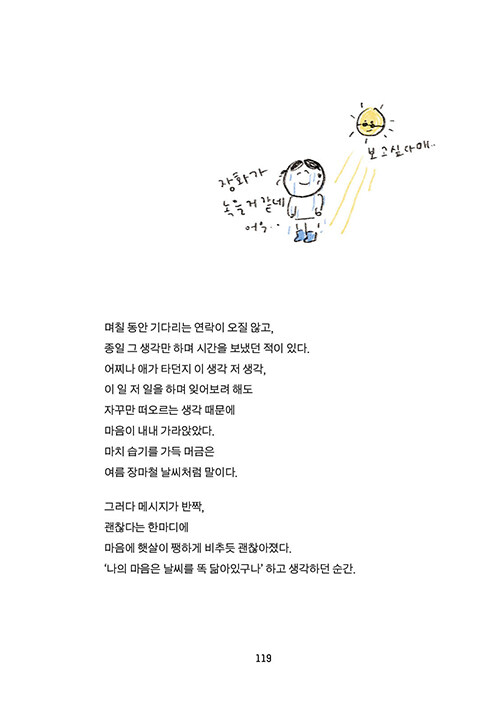 보고싶다매..
장화가
녹을거 같네
어우..
며칠 동안 기다리는 연락이 오질 않고,
종일 그 생각만 하며 시간을 보냈던 적이 있다.
어찌나 애가 타던지 이 생각 저 생각,
이 일 저 일을 하며 잊어보려 해도
자꾸만 떠오르는 생각 때문에
마음이 내내 가라앉았다.
마치 습기를 가득 머금은
여름 장마철 날씨처럼 말이다.
그러다 메시지가 반짝,
괜찮다는 한마디에
마음에 햇살이 쨍하게 비추듯 괜찮아졌다.
‘나의 마음은 날씨를 똑 닮아있구나’ 하고 생각하던 순간.
119